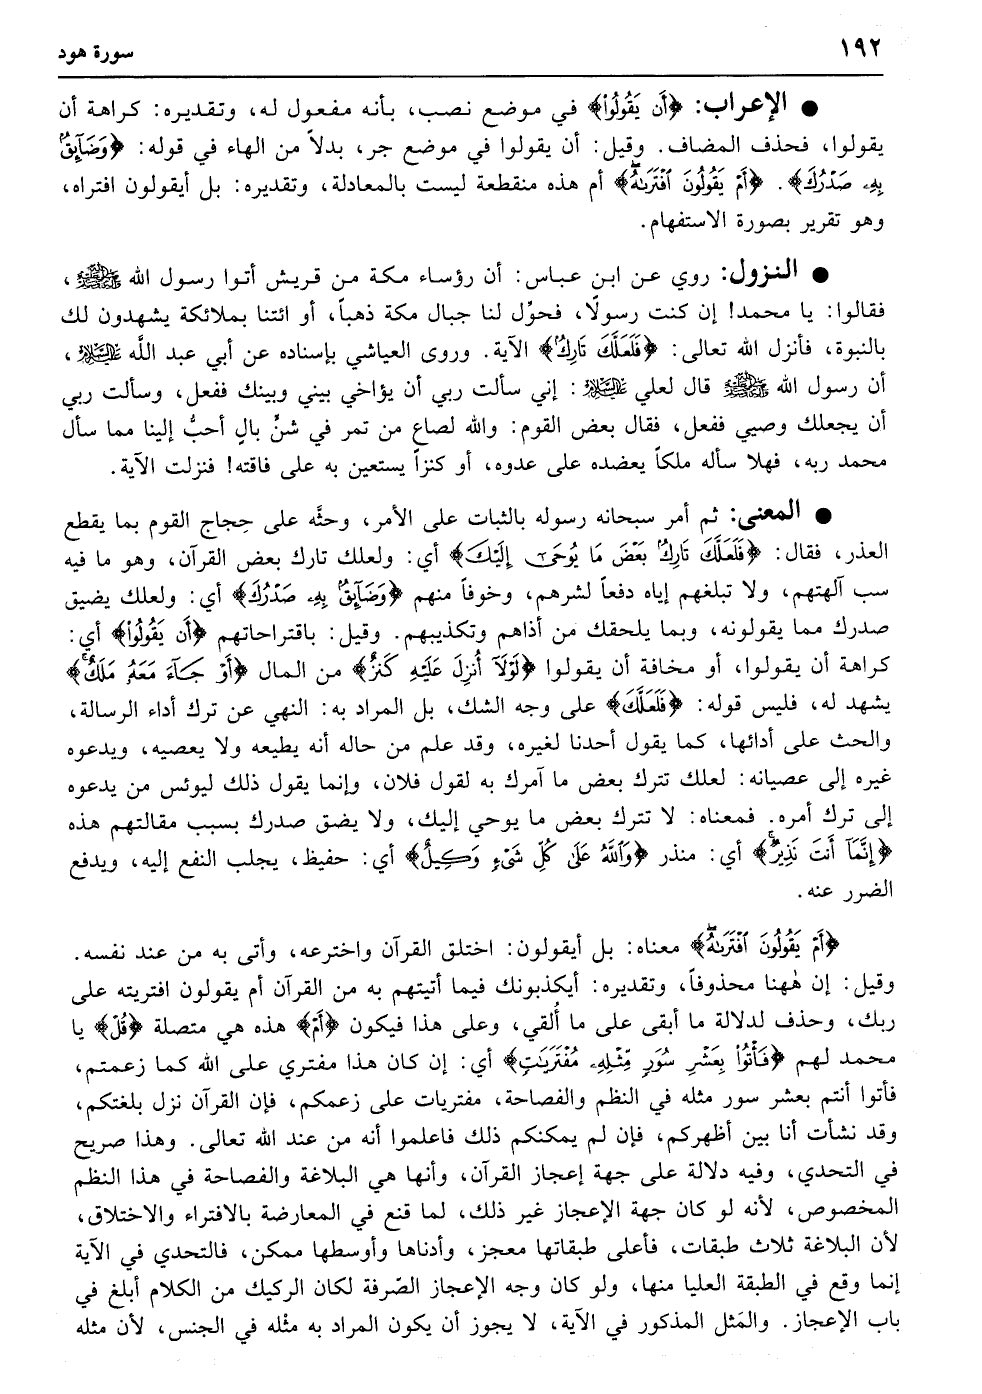 ١٩٢
سورة هود
● الإعراب: ﴿أَن يَقُولُواْ﴾ في موضع نصب، بأنه مفعول له، وتقديره: كراهة أن
يقولوا، فحذف المضاف. وقيل: أن يقولوا في موضع جر، بدلاً من الهاء في قوله: ﴿وَضَآئِقٌۢ
بِهِۦ صَدْرُكَ﴾. ﴿أَمْ يَقُولُونَ ٱفْتَرَىٰهُۖ﴾ أم هذه منقطعة ليست بالمعادلة، وتقديره: بل أيقولون افتراه،
وهو تقرير بصورة الاستفهام.
● النزول: روي عن ابن عباس: أن رؤساء مكة من قريش أتوا رسول الله ﷺ،
فقالوا: يا محمد! إن كنت رسولًا، فحوِّل لنا جبال مكة ذهباً، أو ائتنا بملائكة يشهدون لك
بالنبوة، فأنزل الله تعالى: ﴿فَلَعَلَّكَ تَارِكٌۢ﴾ الآية. وروى العياشي بإسناده عن أبي عبد اللَّه عليه السلام،
أن رسول الله ﷺ قال لعلي عليه السلام: إني سألت ربي أن يؤاخي بيني وبينك ففعل، وسألت ربي
أن يجعلك وصيي ففعل، فقال بعض القوم: والله لصاع من تمر في شنٍّ بالٍ أحبُّ إلينا مما سأل
محمد ربه، فهلا سأله ملكاً يعضده على عدوه، أو كنزاً يستعين به على فاقته! فنزلت الآية.
● المعنى: ثم أمر سبحانه رسوله بالثبات على الأمر، وحثَّه على حِجاج القوم بما يقطع
العذر، فقال: ﴿فَلَعَلَّكَ تَارِكٌۢ بَعْضَ مَا يُوحَىٰٓ إِلَيْكَ﴾ أي: ولعلك تارك بعض القرآن، وهو ما فيه
سب آلهتهم، ولا تبلغهم إياه دفعاً لشرهم، وخوفاً منهم ﴿وَضَآئِقٌۢ بِهِۦ صَدْرُكَ﴾ أي: ولعلك يضيق
صدرك مما يقولونه، وبما يلحقك من أذاهم وتكذيبهم. وقيل: باقتراحاتهم ﴿أَن يَقُولُواْ﴾ أي:
كراهة أن يقولوا، أو مخافة أن يقولوا ﴿لَوْلَآ أُنزِلَ عَلَيْهِ كَنزٌ﴾ من المال ﴿أَوْ جَآءَ مَعَهُۥ مَلَكٌۚ﴾
يشهد له، فليس قوله: ﴿فَلَعَلَّكَ﴾ على وجه الشك، بل المراد به: النهي عن ترك أداء الرسالة،
والحث على أدائها، كما يقول أحدنا لغيره، وقد علم من حاله أنه يطيعه ولا يعصيه، ويدعوه
غيره إلى عصيانه: لعلك تترك بعض ما آمرك به لقول فلان، وإنما يقول ذلك ليوئس من يدعوه
إلى ترك أمره. فمعناه: لا تترك بعض ما يوحي إليك، ولا يضق صدرك بسبب مقالتهم هذه
﴿إِنَّمَآ أَنتَ نَذِيرٌۚ﴾ أي: منذر ﴿وَٱللَّهُ عَلَىٰ كُلِّ شَىْءٍ وَكِيلٌ﴾ أي: حفيظ، يجلب النفع إليه، ويدفع
الضرر عنه.
﴿أَمْ يَقُولُونَ ٱفْتَرَىٰهُۖ﴾ معناه: بل أيقولون: اختلق القرآن واخترعه، وأتى به من عند نفسه.
وقيل: إن هٰهنا محذوفاً، وتقديره: أيكذبونك فيما أتيتهم به من القرآن أم يقولون افتريته على
ربك، وحذف لدلالة ما أبقى على ما أُلقي، وعلى هذا فيكون ﴿أَمْ﴾ هذه هي متصلة ﴿قُلْ﴾ يا
محمد لهم ﴿فَأْتُواْ بِعَشْرِ سُوَرٍ مِّثْلِهِۦ مُفْتَرَيَـٰتٍ﴾ أي: إن كان هذا مفتري على الله كما زعمتم،
فأتوا أنتم بعشر سور مثله في النظم والفصاحة، مفتريات على زعمكم، فإن القرآن نزل بلغتكم،
وقد نشأت أنا بين أظهركم، فإن لم يمكنكم ذلك فاعلموا أنه من عند الله تعالى. وهذا صريح
في التحدي، وفيه دلالة على جهة إعجاز القرآن، وأنها هي البلاغة والفصاحة في هذا النظم
المخصوص، لأنه لو كان جهة الإعجاز غير ذلك، لما قنع في المعارضة بالافتراء والاختلاق،
لأن البلاغة ثلاث طبقات، فأعلى طبقاتها معجز، وأدناها وأوسطها ممكن، فالتحدي في الآية
إنما وقع في الطبقة العليا منها، ولو كان وجه الإعجاز الصّرفة لكان الركيك من الكلام أبلغ في
باب الإعجاز. والمَثل المذكور في الآية، لا يجوز أن يكون المراد به مثْله في الجنس، لأن مثله